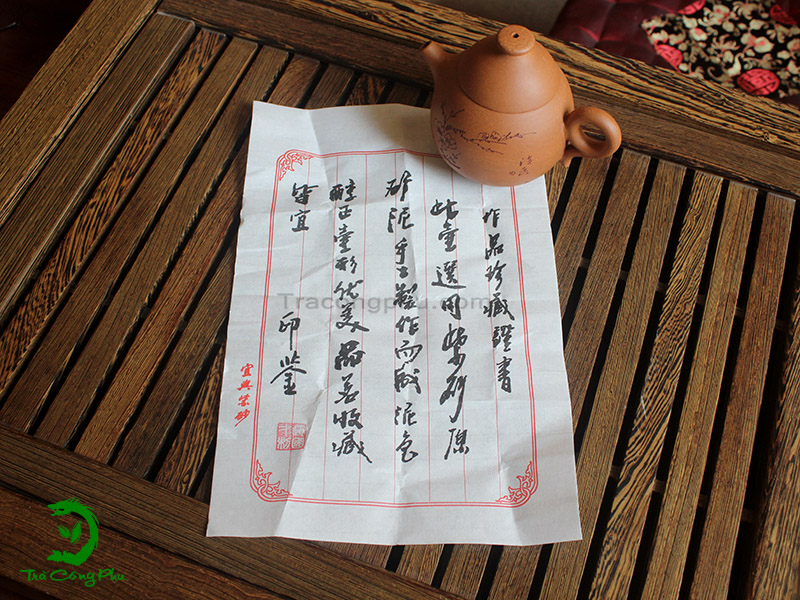 作品珍藏證書
此壷選用紫砂原
砂泥手工製作而成泥色
醇正壷形优美品茗收藏
皆宜
印鉴
宜興紫砂
Tracongphu.com
Trà Công Phu